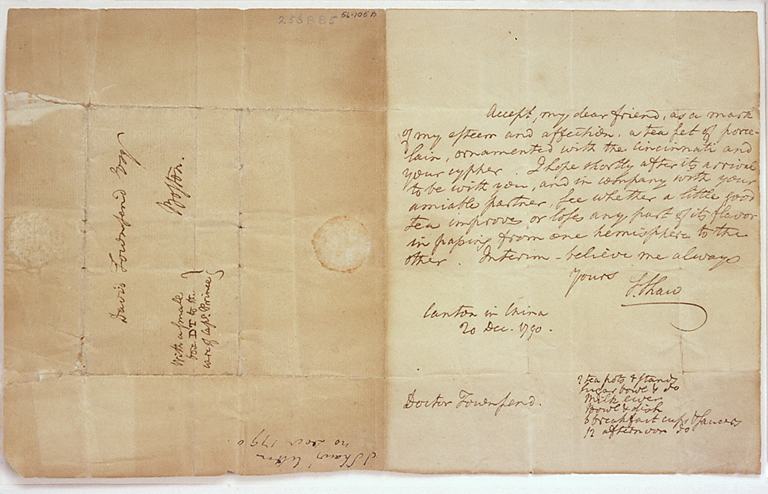 256 B B5
56-105 A
Davis Townsend Esqr
Boston.
With a small
box DT to the
care of Capt. Prince
S Shaw's letter
20 Decr 1790
Accept, my dear friend, as a mark
of my esteem and affection, a tea set of porce-
lain, ornamented with the cincinnati and
your cypher. I hope shortly after its arrival
to be with you, and in company with your
amiable partner, see whether a little good
tea improves or loses any part of its flavor
in passing from one hemisphere to the
other. Interim - believe me always
Yours
S. Shaw
Canton in China
20 Dec. 1790.
Doctor Townsend.
2 tea pots & stands
Sugar bowl & do
Milk ewer
Bowl & dish
6 breakfast cups & saucers
12 afternoon do